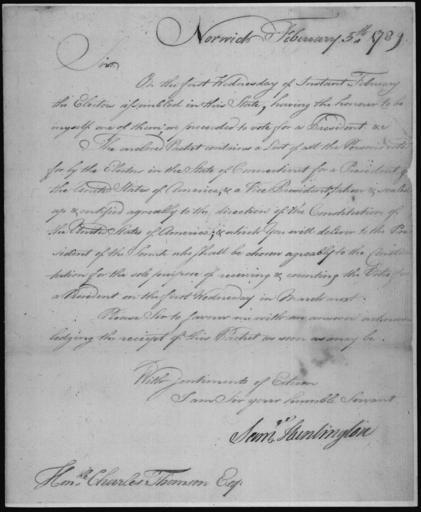 Norwich February 5th 1789
Sir
On the first Wednesday of Instant February
the Electors assembled in this State, having the honour to be
myself one of them; we proceeded to vote for a President &c
The enclosed Packet contains a List of all the Persons voted
for by the Electors in the State of Connecticut for a President of
the United States of America, & a Vice President, taken & sealed
up & certified agreably to the direction of the Constitution of
the United States of America; & which you will deliver to the Pre-
sident of the Senate who shall be chosen agreably to the Consti-
tution for the sole purpose of receiving & counting the Votes for
a President on the first Wednesday in March next.
Please Sir to favour me with an answer acknow-
ledging the receipt of this Packet as soon as may be.
With sentiments of Esteem
I am Sir your humble Servant
Saml Huntington
Honble Charles Thomson Esqr